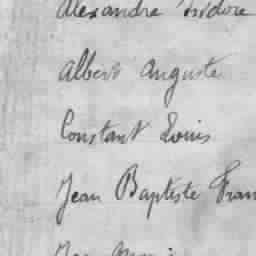 Alexandre Isidore
Albert Auguste
Constant Louis
Jean Baptiste Fran